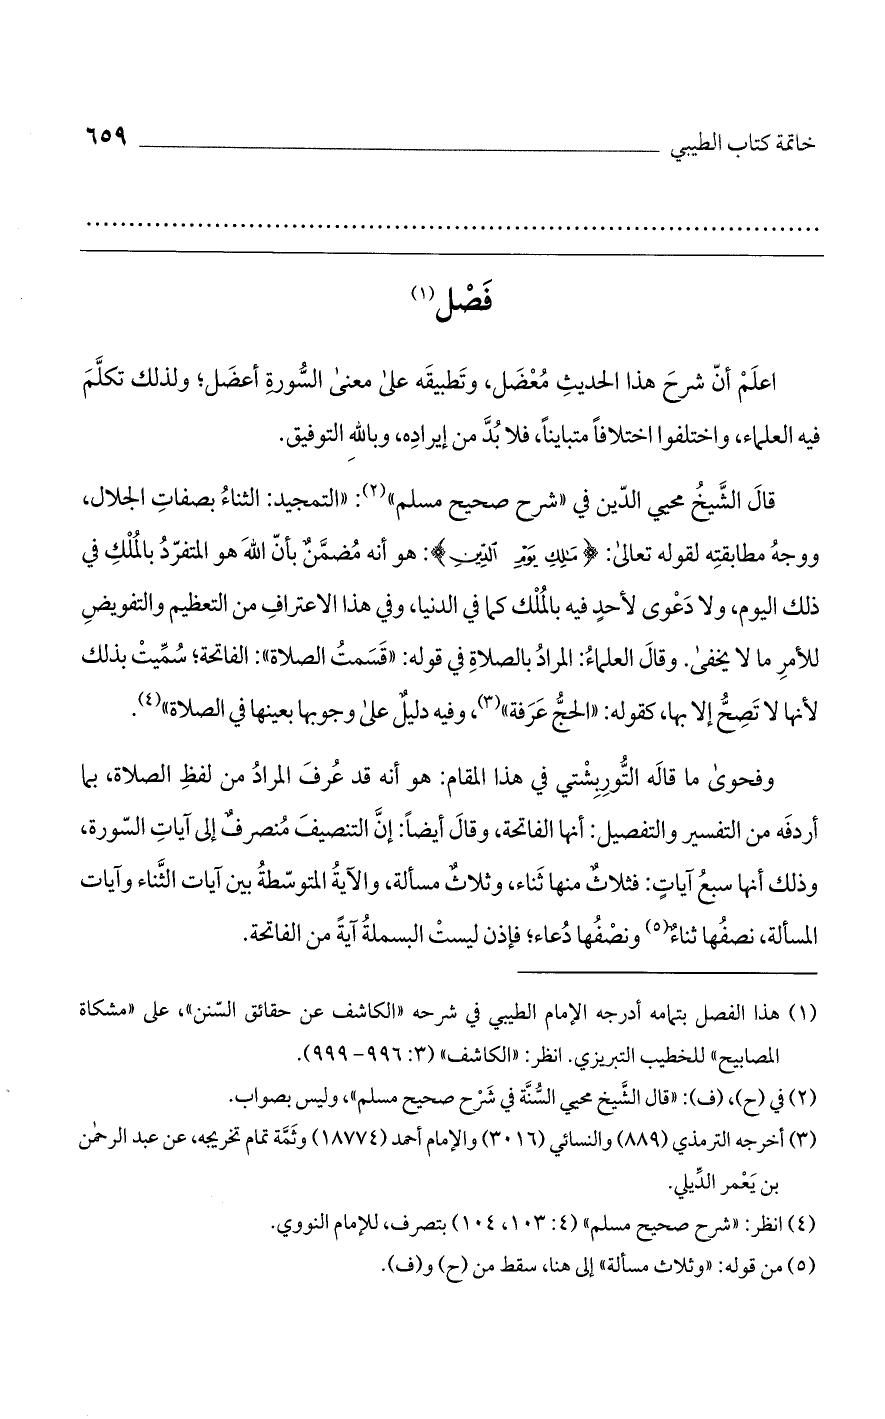 خاتمة كتاب الطيبي ٦٥٩
فَصْل(١)
اعلَمْ أنّ شرحَ هذا الحديثِ مُعْضَل، وتَطبيقَه علىٰ معنىٰ السُّورةِ أعضَل؛ ولذلك تكلَّمَ
فيه العلماء، واختلفوا اختلافاً متبايناً، فلا بُدَّ من إيرادِه، وبالله التوفيق.
قالَ الشَّيخُ محيي الدّين في «شرح صحيح مسلم»(٢): «التمجيد: الثناءُ بصفاتِ الجلال،
ووجهُ مطابقتِه لقوله تعالىٰ: ﴿مَـٰلِكِ يَوْمِ ٱلدِّينِ﴾: هو أنه مُضمَّنٌ بأنّ اللهَ هو المتفرّدُ بالمُلْكِ في
ذلك اليوم، ولا دَعْوى لأحدٍ فيه بالمُلْك كما في الدنيا، وفي هذا الاعترافِ من التعظيم والتفويضِ
للأمرِ ما لا يخفىٰ. وقالَ العلماءُ: المرادُ بالصلاةِ في قوله: «قَسَمتُ الصلاة»: الفاتحة؛ سُمِّيتْ بذلك
لأنها لا تَصِحُّ إلا بها، كقوله: «الحجُّ عَرَفة»(٣)، وفيه دليلٌ علىٰ وجوبها بعينها في الصلاة»(٤).
وفحوىٰ ما قالَه التُّورِبِشْتي في هذا المقام: هو أنه قد عُرفَ المرادُ من لفظِ الصلاة، بما
أردفَه من التفسير والتفصيل: أنها الفاتحة، وقالَ أيضاً: إنَّ التنصيفَ مُنصرفٌ إلى آياتِ السّورة،
وذلك أنها سبعُ آياتٍ: فثلاثٌ منها ثَناء، وثلاثٌ مسألة، والآيةُ المتوسّطةُ بين آيات الثَّناء وآيات
المسألة، نصفُها ثناءٌ(٥) ونصْفُها دُعاء؛ فإذن ليستْ البسملةُ آيةً من الفاتحة.
(١) هذا الفصل بتمامه أدرجه الإمام الطيبي في شرحه «الكاشف عن حقائق السّنن»، على «مشكاة
المصابيح» للخطيب التبريزي. انظر: «الكاشف» (٣: ٩٩٦- ٩٩٩).
(٢) في (ح)، (ف): «قال الشَّيخ محيي السُّنَّة في شَرْح صحيح مسلم»، وليس بصواب.
(٣) أخرجه الترمذي (٨٨٩) والنسائي (٣٠١٦) والإمام أحمد (١٨٧٧٤) وثَمَّة تمام تخريجه، عن عبد الرحمٰن
بن يَعْمر الدِّيلي.
(٤) انظر: «شرح صحيح مسلم» (٤: ١٠٣، ١٠٤) بتصرف، للإمام النووي.
(٥) من قوله: «وثلاث مسألة» إلى هنا، سقط من (ح) و(ف).